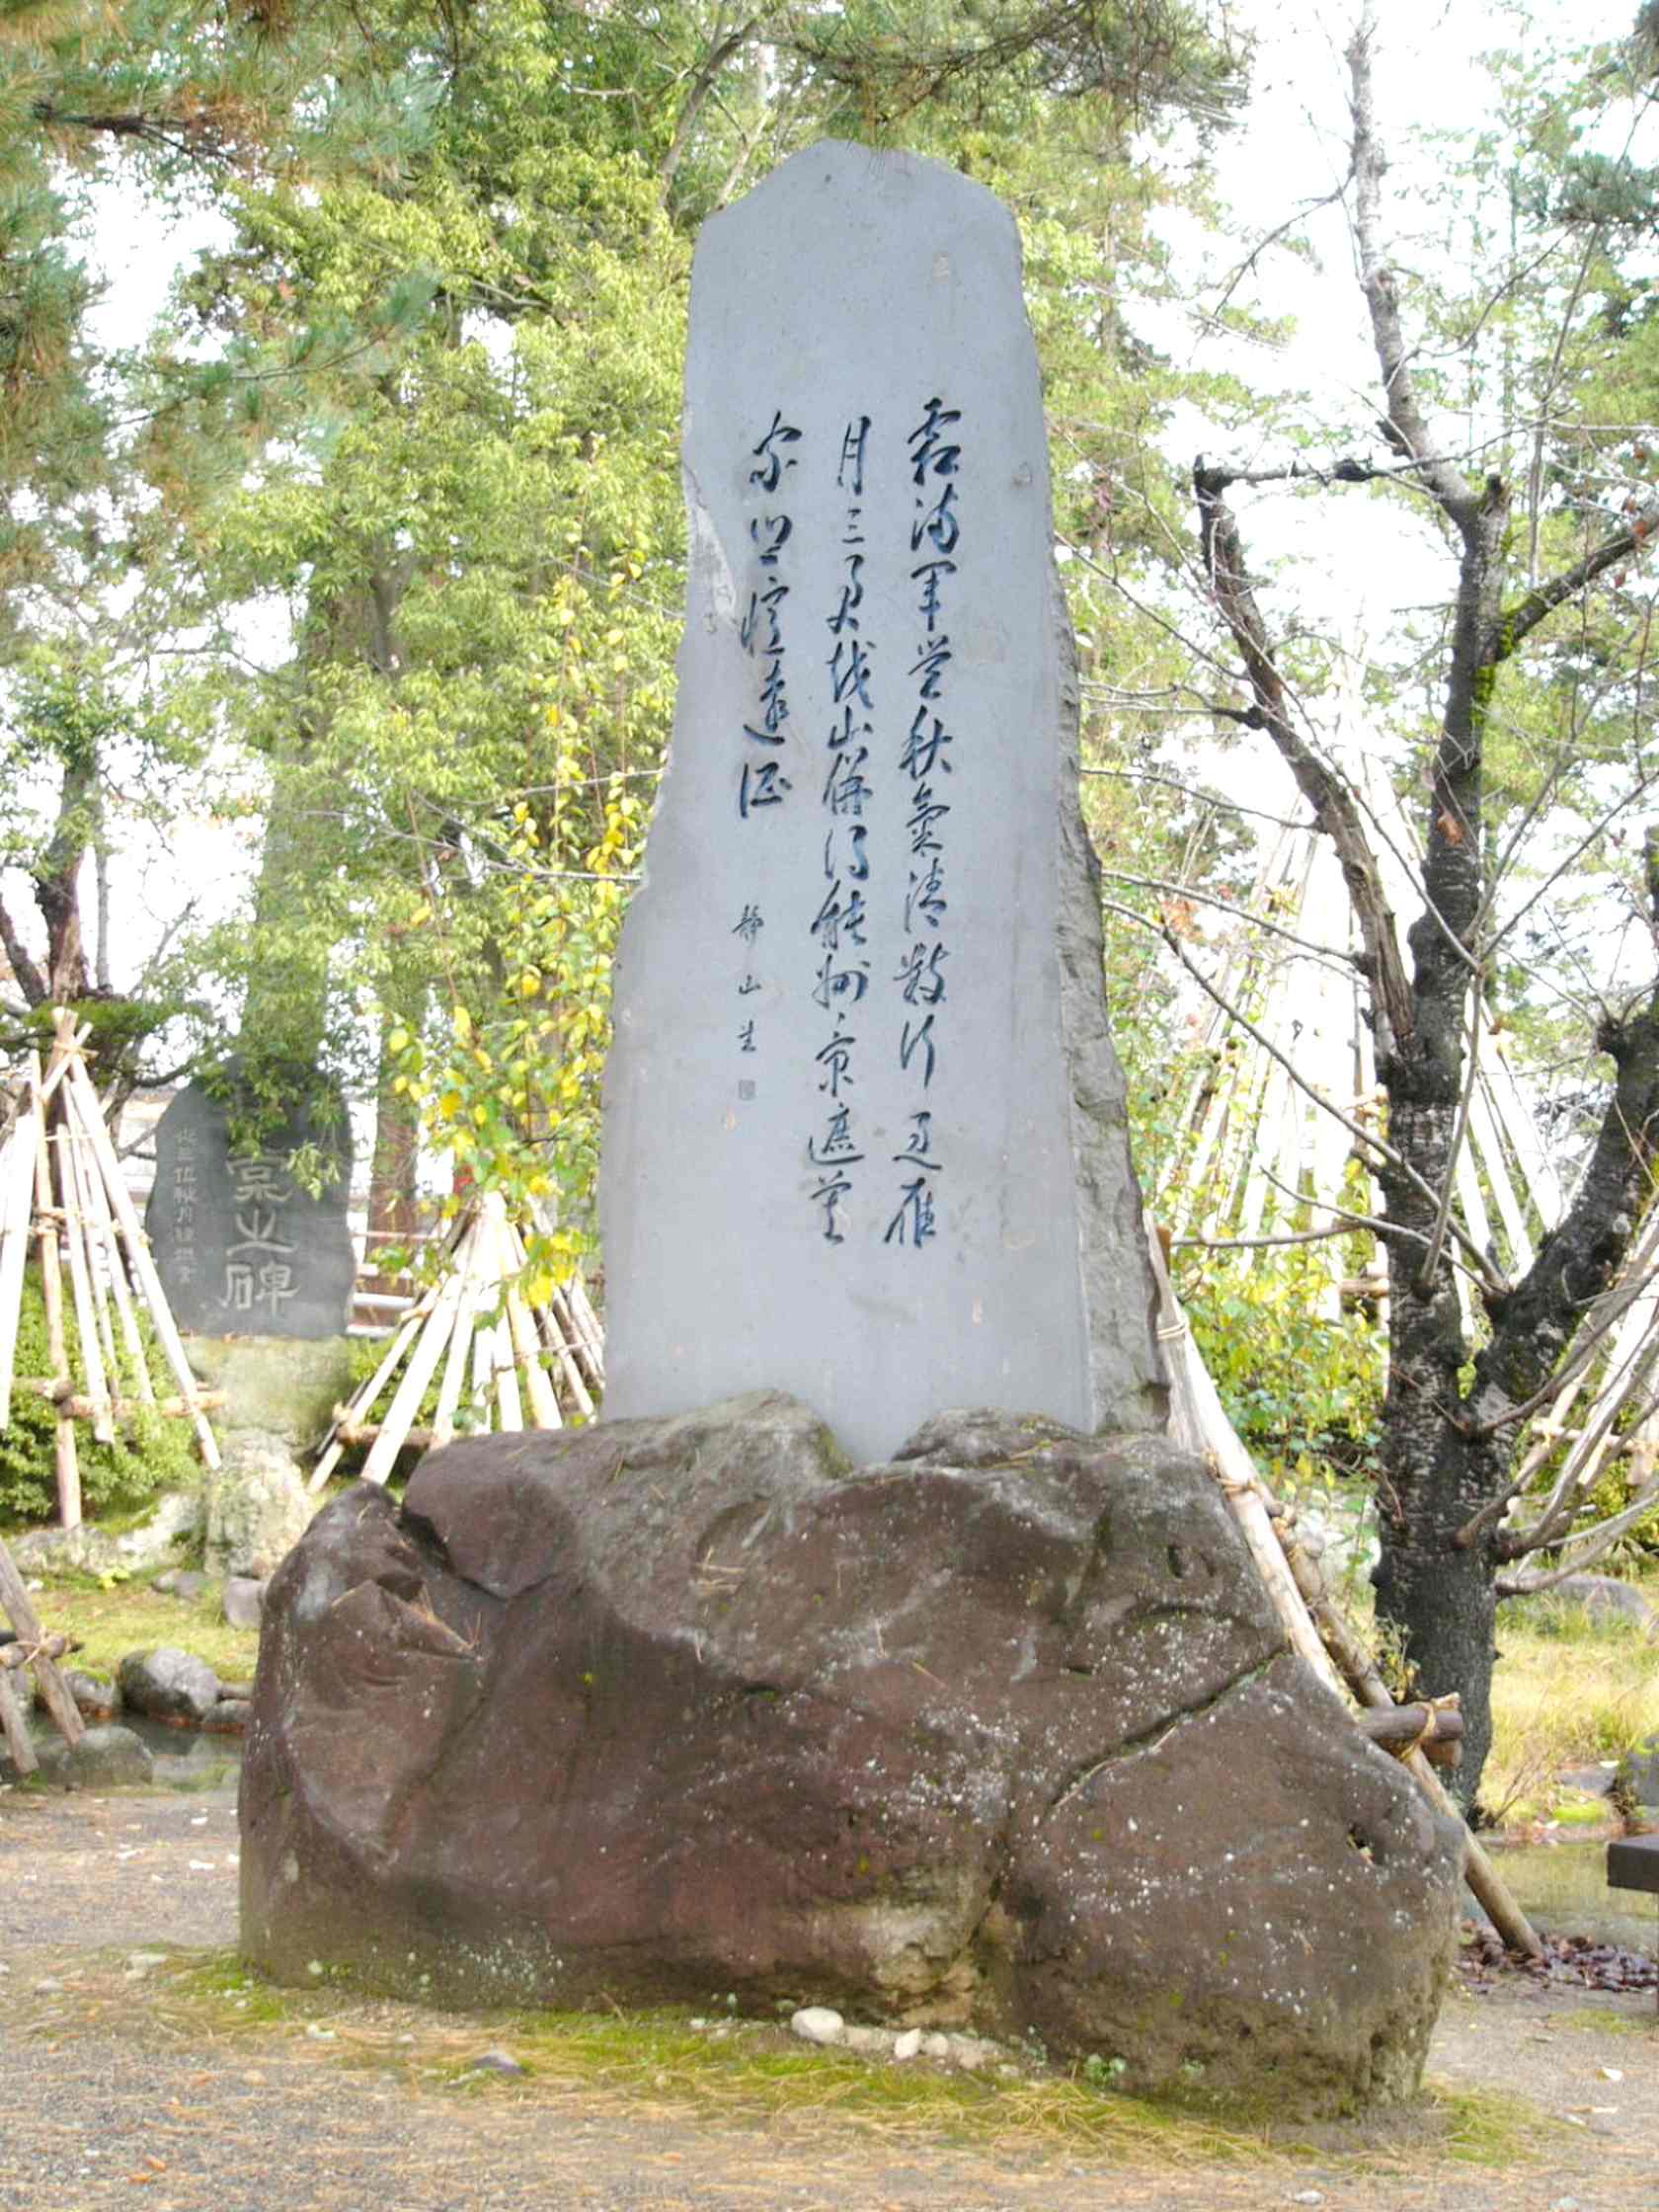 霜満軍営秋氣清數行過雁
月三更越山併得能州景遮莫
家郷憶遠征
静山生
棠之碑